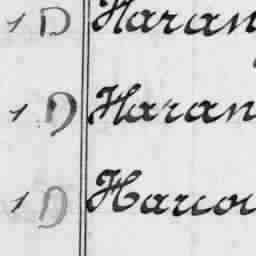 1 D Haran
1 D Haran
1 D Harcou